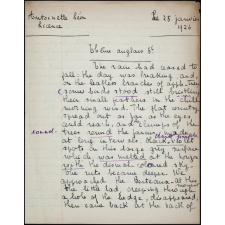 Antoinette Léon Le 28 janvier
Licence 1926
Thème anglais
The rain had ceased to
fall: the day was breaking and,
on the leafless branches of apple trees
some birds stood still bristling
their small feathers in the chilly
morning wind. The flat country
spread out as far as the eye
could reach, and clumps of
trees round the farms, made
at long intervals black violet
spots on this large grey surface
which was melted at the horizon
with the dismal colour of sky.
The ruts became deeper. We
approached the
the little lad, creeping through
a hole of the hedge, disappeared,
then came back at the back of